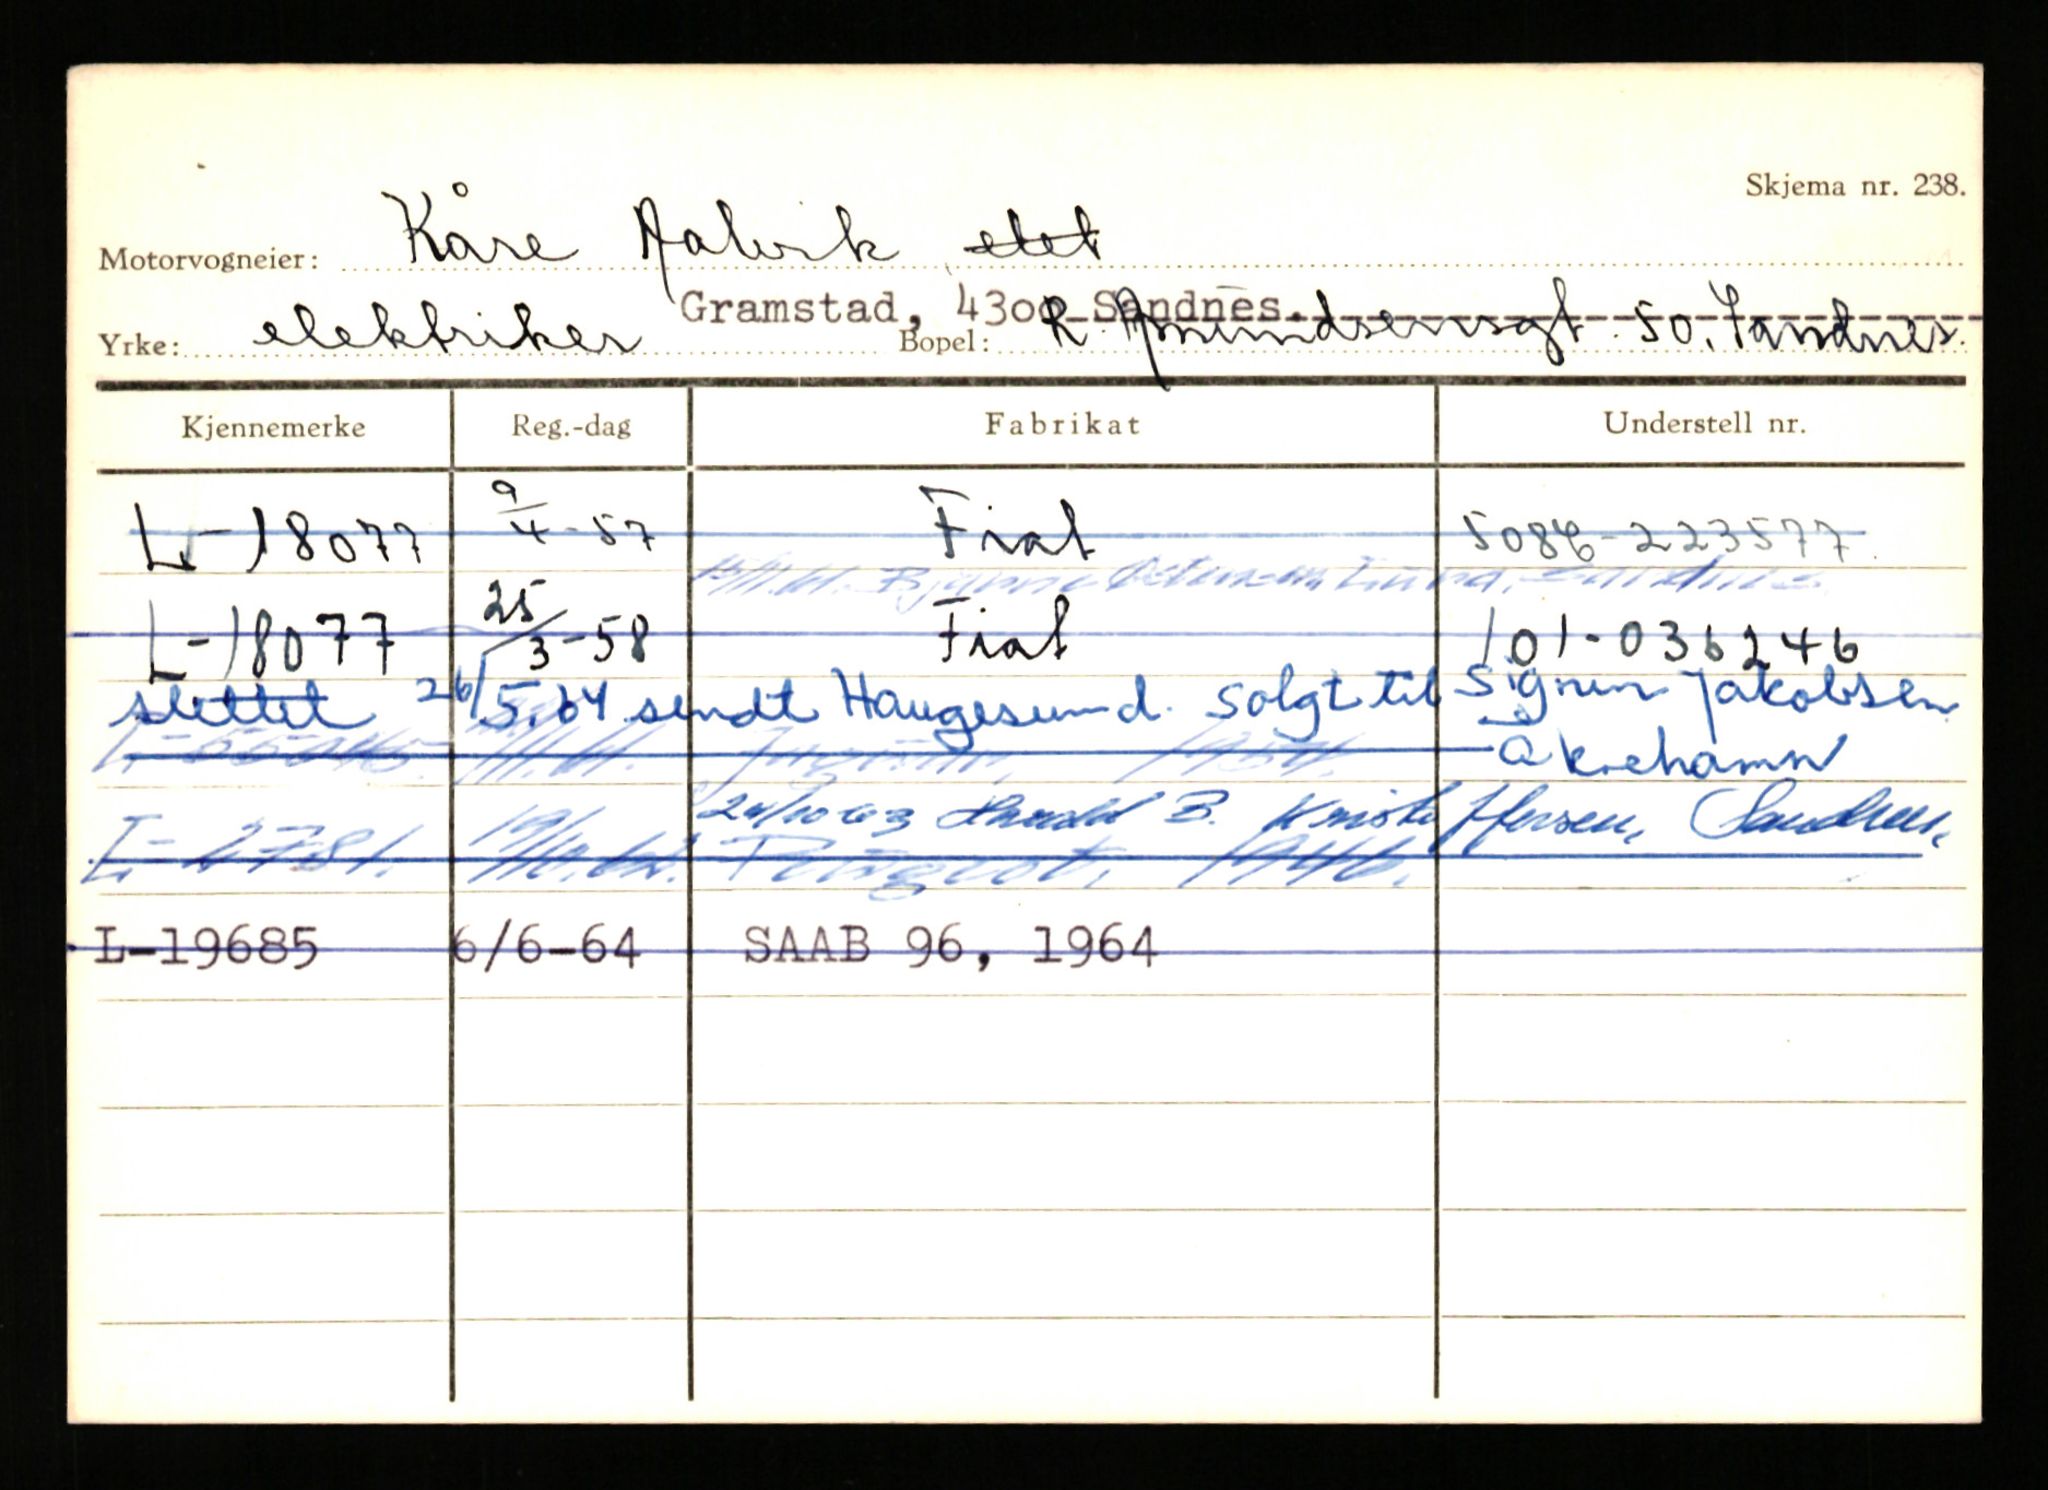 Skjema nr. 238.
Motorvogneier: Kåre Aalvik
Gramstad, 4300 Sandnes.
Yrke: elektriker Bopel: R Amundsensgt 50, Sandnes.
Kjennemerke Reg.-dag Fabrikat Understell nr.
L-18077 9/4-57 Fiat 508C-223577
Bjarne
L-18077 25/3-58 Fiat 101-036246
slettet 26/5.64 sendt Haugesund. Solgt til Signun Jakobsen
Åkrehamn
24/10 63 Harald B. Kristoffersen, Sandnes.
L-2781. Peugeot, 1946.
L-19685 6/6-64 SAAB 96, 1964